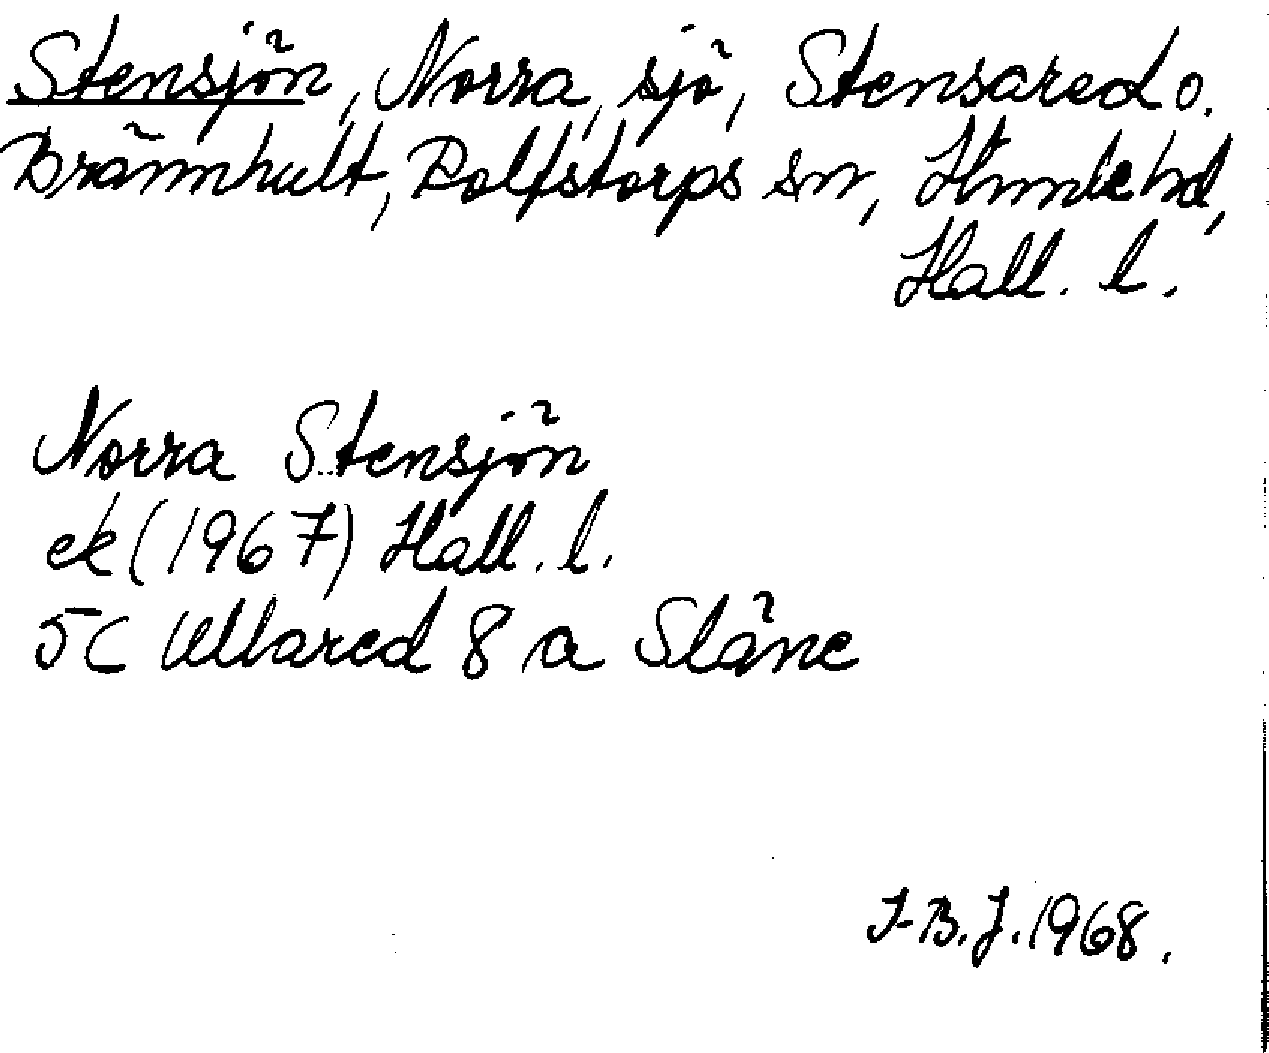 Stensjön, Norra, sjö, Stensared o.
Brännhult, Rolfstorps sn, Himle hd,
Hall. l.
Norra Stensjön
ek (1967) Hall. l.
5C Ullared 8 a Släne
I-B. J. 1968.